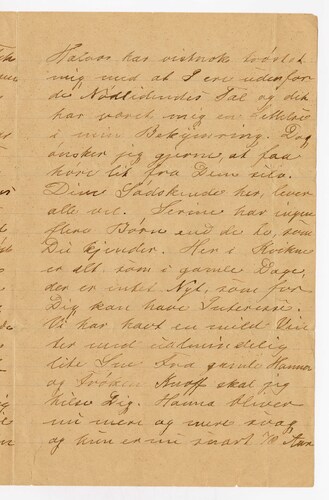 Halvor har vistnok trøstet
mig med at I ere udenfor
de Nødlidendes Tal og det
har været mig en Lettelse
i min Bekymring. Dog
ønsker jeg gjerne, at faa
høre lit fra Dem selv.
Dine Sødskende her, lever
alle vel. Serine har ingen
flere Børn end de to, som
Du kjender. Her i Kvikne
er alt som i gamle Dage,
der er intet Nyt, som for
Dig kan have Interesse.
Vi har havt en mild Vin
ter med ualmindelig
lite Sne Fra gamle Hanna
og Frøken Knoff skal jeg
hilse Dig. Hanna bliver
nu mere og mere svag
og hun er nu snart 78 Aar